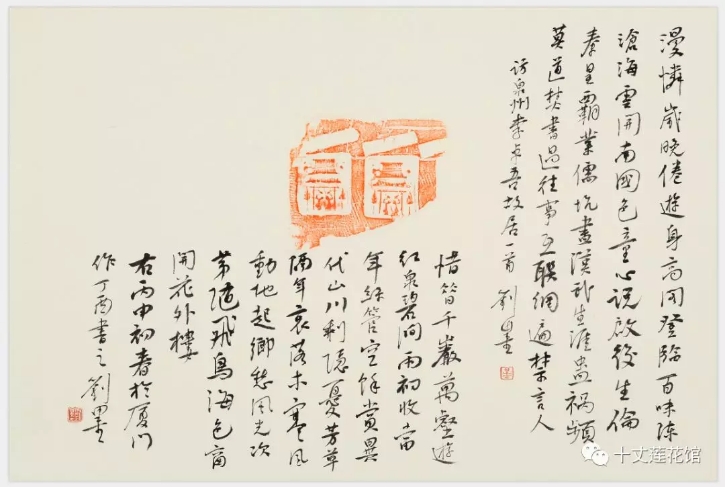 漫憐歲晚倦遊身高閣登臨百味陳
滄海雲開南國色童心說啟後生倫
秦皇霸業儒坑盡漢武生涯蠱禍頻
莫道焚書過往事互聯網遍禁言人
訪泉州李卓吾故居一首 劉墨
惜昔千巖萬壑遊
紅泉碧澗雨初收當
年絲管空餘賞異
代山川剩隱憂芳草
隔年哀落木寒風
動地起鄉愁風光次
第隨飛鳥海色窗
開花外樓
右丙申初春於廈門
作丁酉書之劉墨
十丈莲花馆